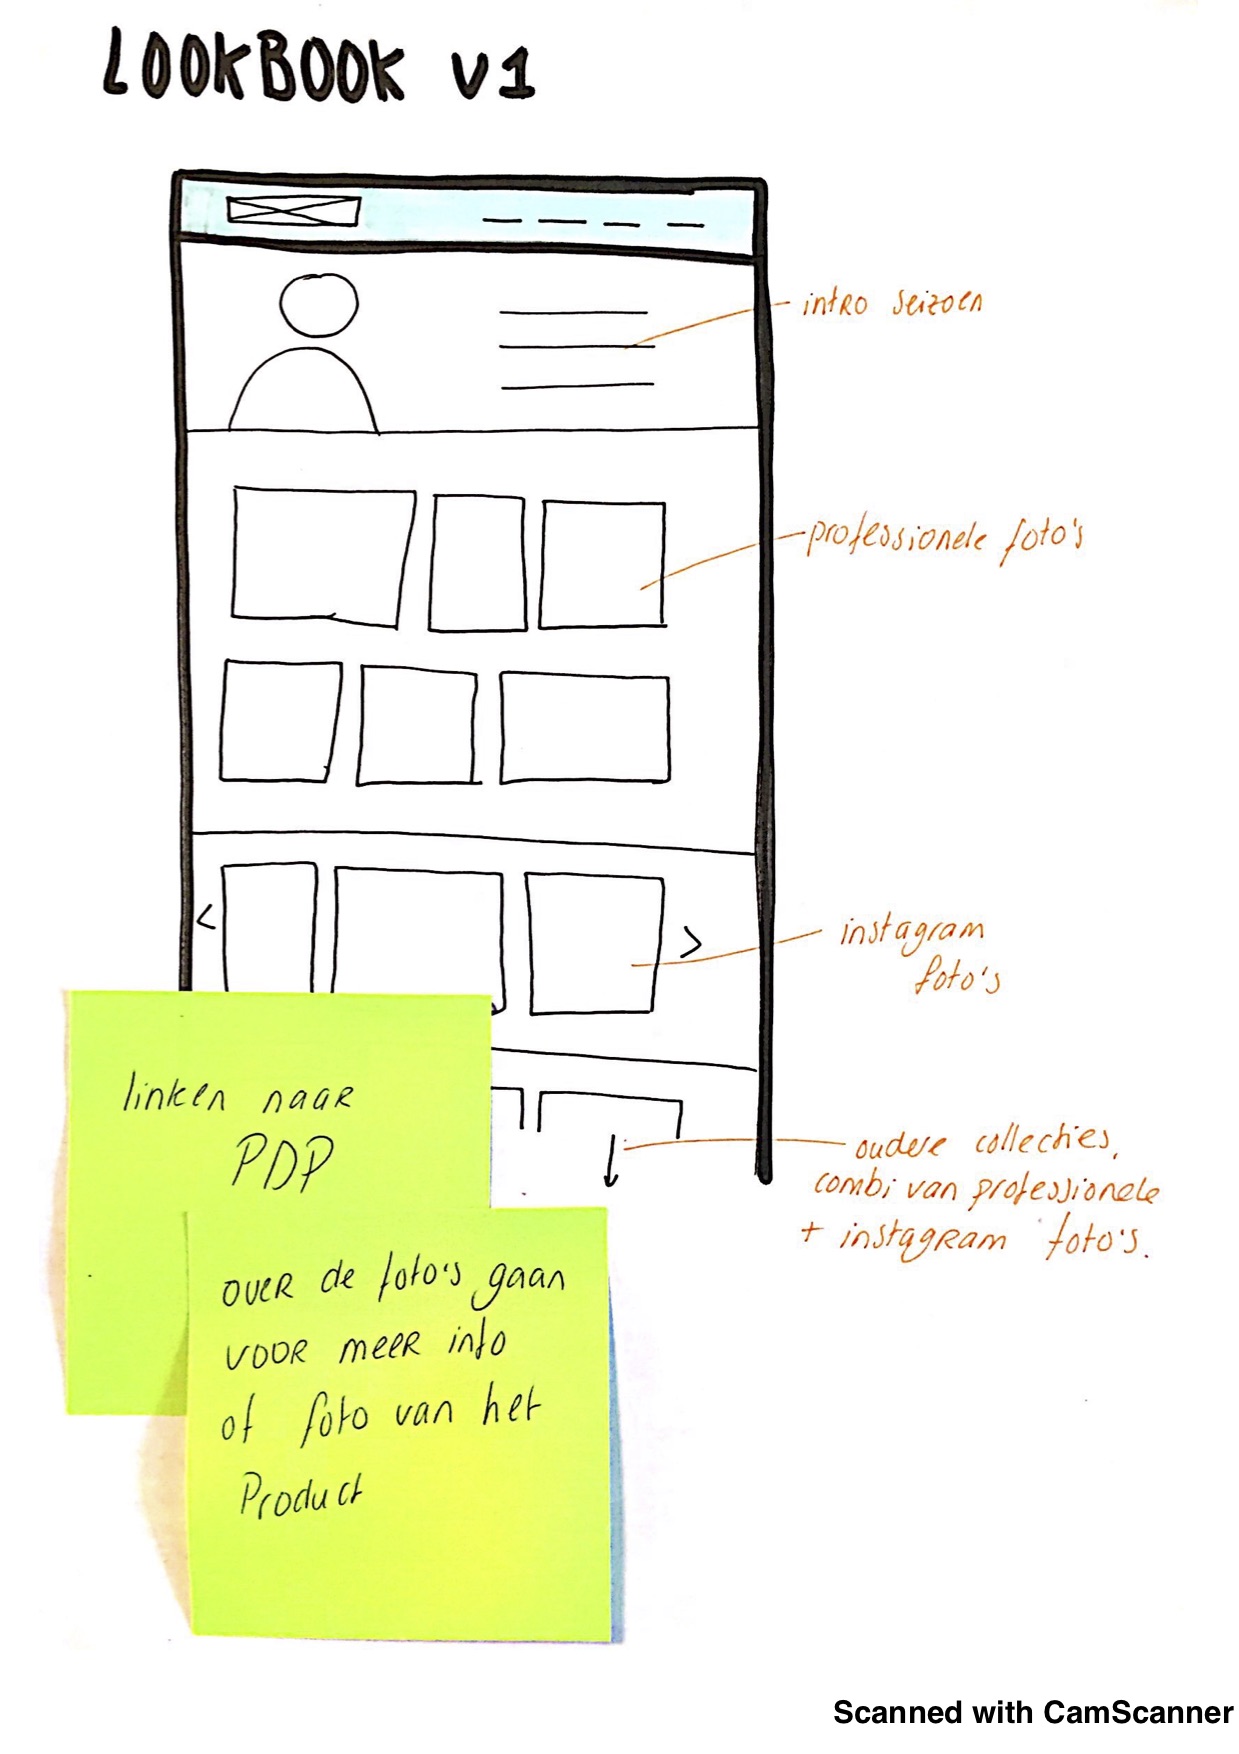 LOOKBOOK V1
intro seizoen
professionele foto's
instagram
foto's
oudere collecties,
combi van professionele
+ instagram foto's.
linken naar
PDP
over de foto's gaan
voor meer info
of foto van het
Product
Scanned with CamScanner